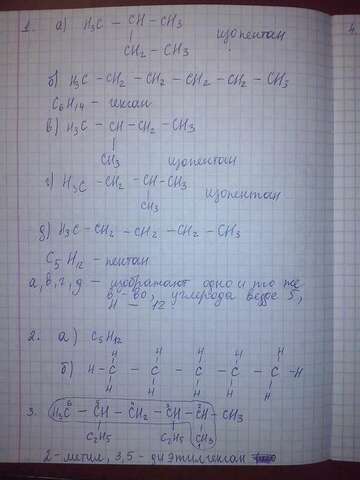 1. а) H₃C – CH – CH₃
|
CH₂ – CH₃ изопентан
б) H₃C – CH₂ – CH₂ – CH₂ – CH₂ – CH₃
C₆H₁₄ – гексан
в) H₃C – CH – CH₂ – CH₃
|
CH₃ изопентан
г) H₃C – CH₂ – CH – CH₃ изопентан
|
CH₃
д) H₃C – CH₂ – CH₂ – CH₂ – CH₃
C₅H₁₂ – пентан
а, в, г, д – изображают одно и то же
в-во, углерода везде 5,
H – 12
2. а) C₅H₁₂
H H H H H
| | | | |
б) H – C – C – C – C – C – H
| | | | |
H H H H H
3. H₃C⁶ – CH⁵ – CH₂⁴ – CH³ – CH² – CH₃
| | |
C₂H₅ C₂H₅ CH₃
1
2-метил, 3,5-диэтилгексан
4.